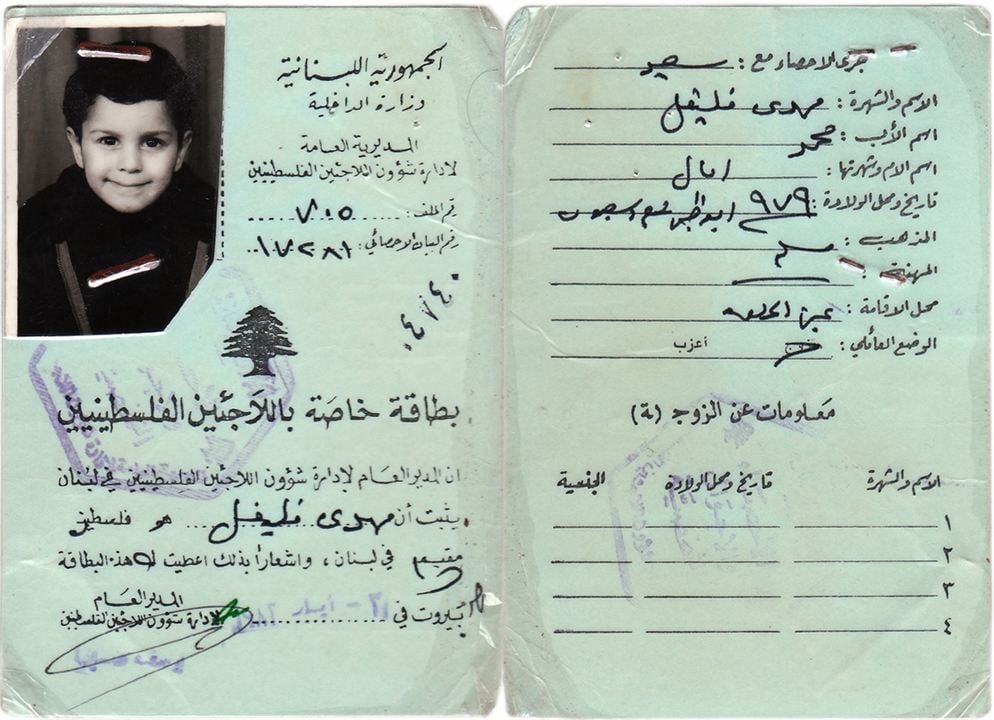 الجمهورية اللبنانية
وزارة الداخلية
المديرية العامة
لادارة شؤون اللاجئين الفلسطينيين
رقم الملف: ٧٠٥
رقم البيان الاحصائي: ١٧٢٨١
٤٧٤٠
بطاقة خاصة باللاجئين الفلسطينيين
ان المدير العام لإدارة شؤون اللاجئين الفلسطينيين في لبنان
يثبت أن مهدى فليفل هو فلسطيني
مقيم في لبنان، واشعاراً بذلك اعطيت له هذه البطاقة
بيروت في
المدير العام
لإدارة شؤون اللاجئين الفلسطينيين
جرى الاحصاء مع: سعيد
الاسم والشهرة: مهدى فليفل
اسم الأب: محمد
اسم الام وشهرتها: امال
تاريخ ومحل الولادة: ٩٧٩
المذهب: مسلم
المهنة:
محل الاقامة: عين الحلوه
الوضع العائلي: أعزب
معلومات عن الزوج (ة)
الاسم والشهرة تاريخ ومحل الولادة الجنسية
١
٢
٣
٤